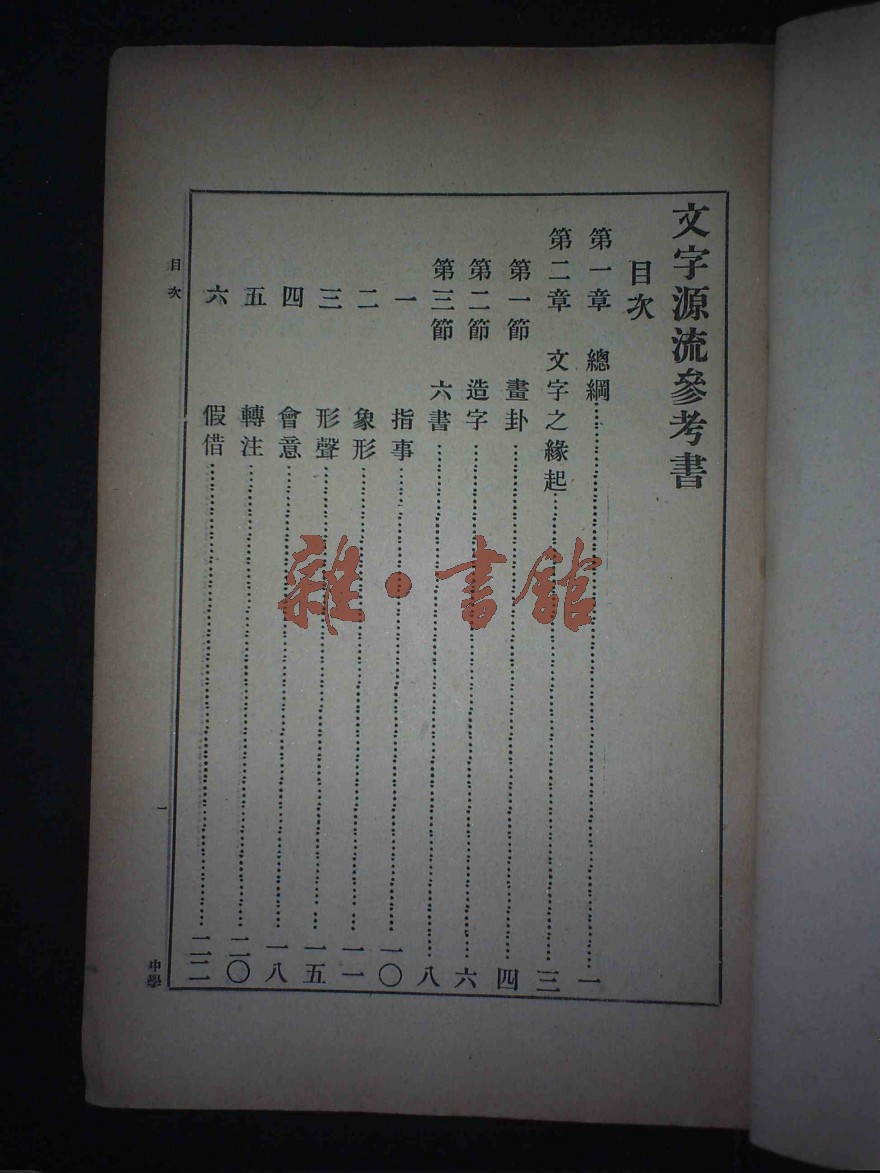 文字源流參考書
目次
第一章 總綱……一
第二章 文字之緣起……三
第一節 畫卦……四
第二節 造字……六
第三節 六書……八
一 指事……一〇
二 象形……一一
三 形聲……一五
四 會意……一八
五 轉注……二〇
六 假借……二二
目次 一 中學
雜·書館